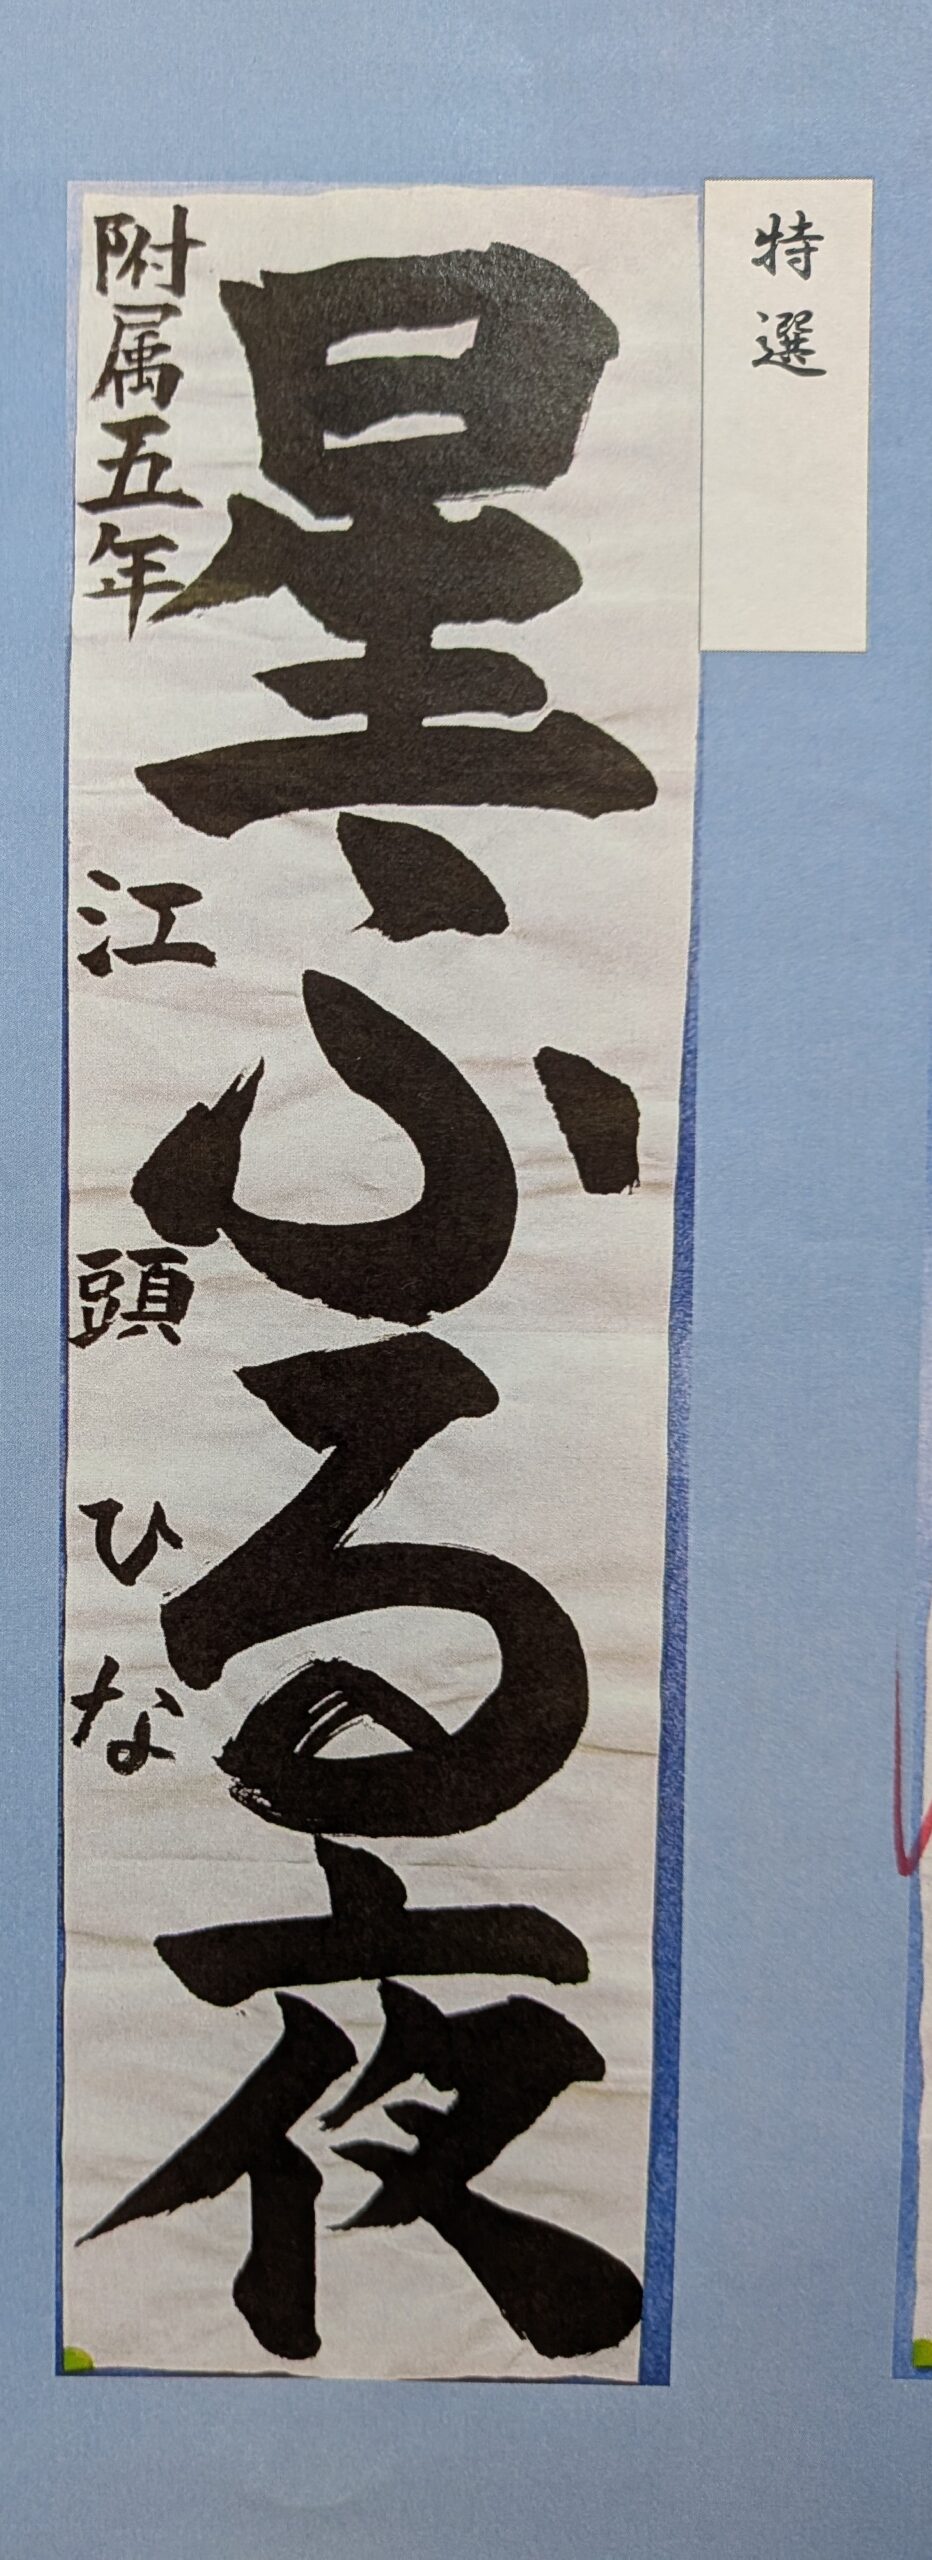 特選
星ふる夜
附属五年 江頭ひな